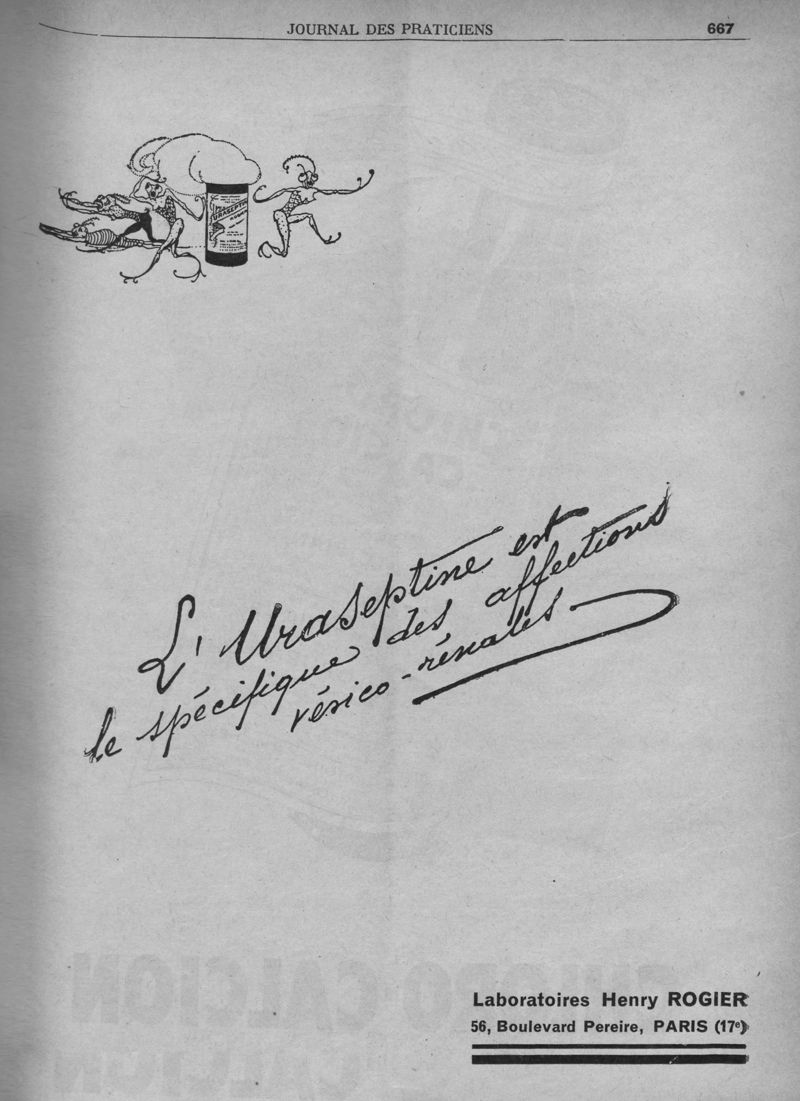 JOURNAL DES PRATICIENS 667
URASEPTINE
L'Uraseptine est
le spécifique des affections
vésico-rénales
Laboratoires Henry ROGIER
56, Boulevard Pereire, PARIS (17e)